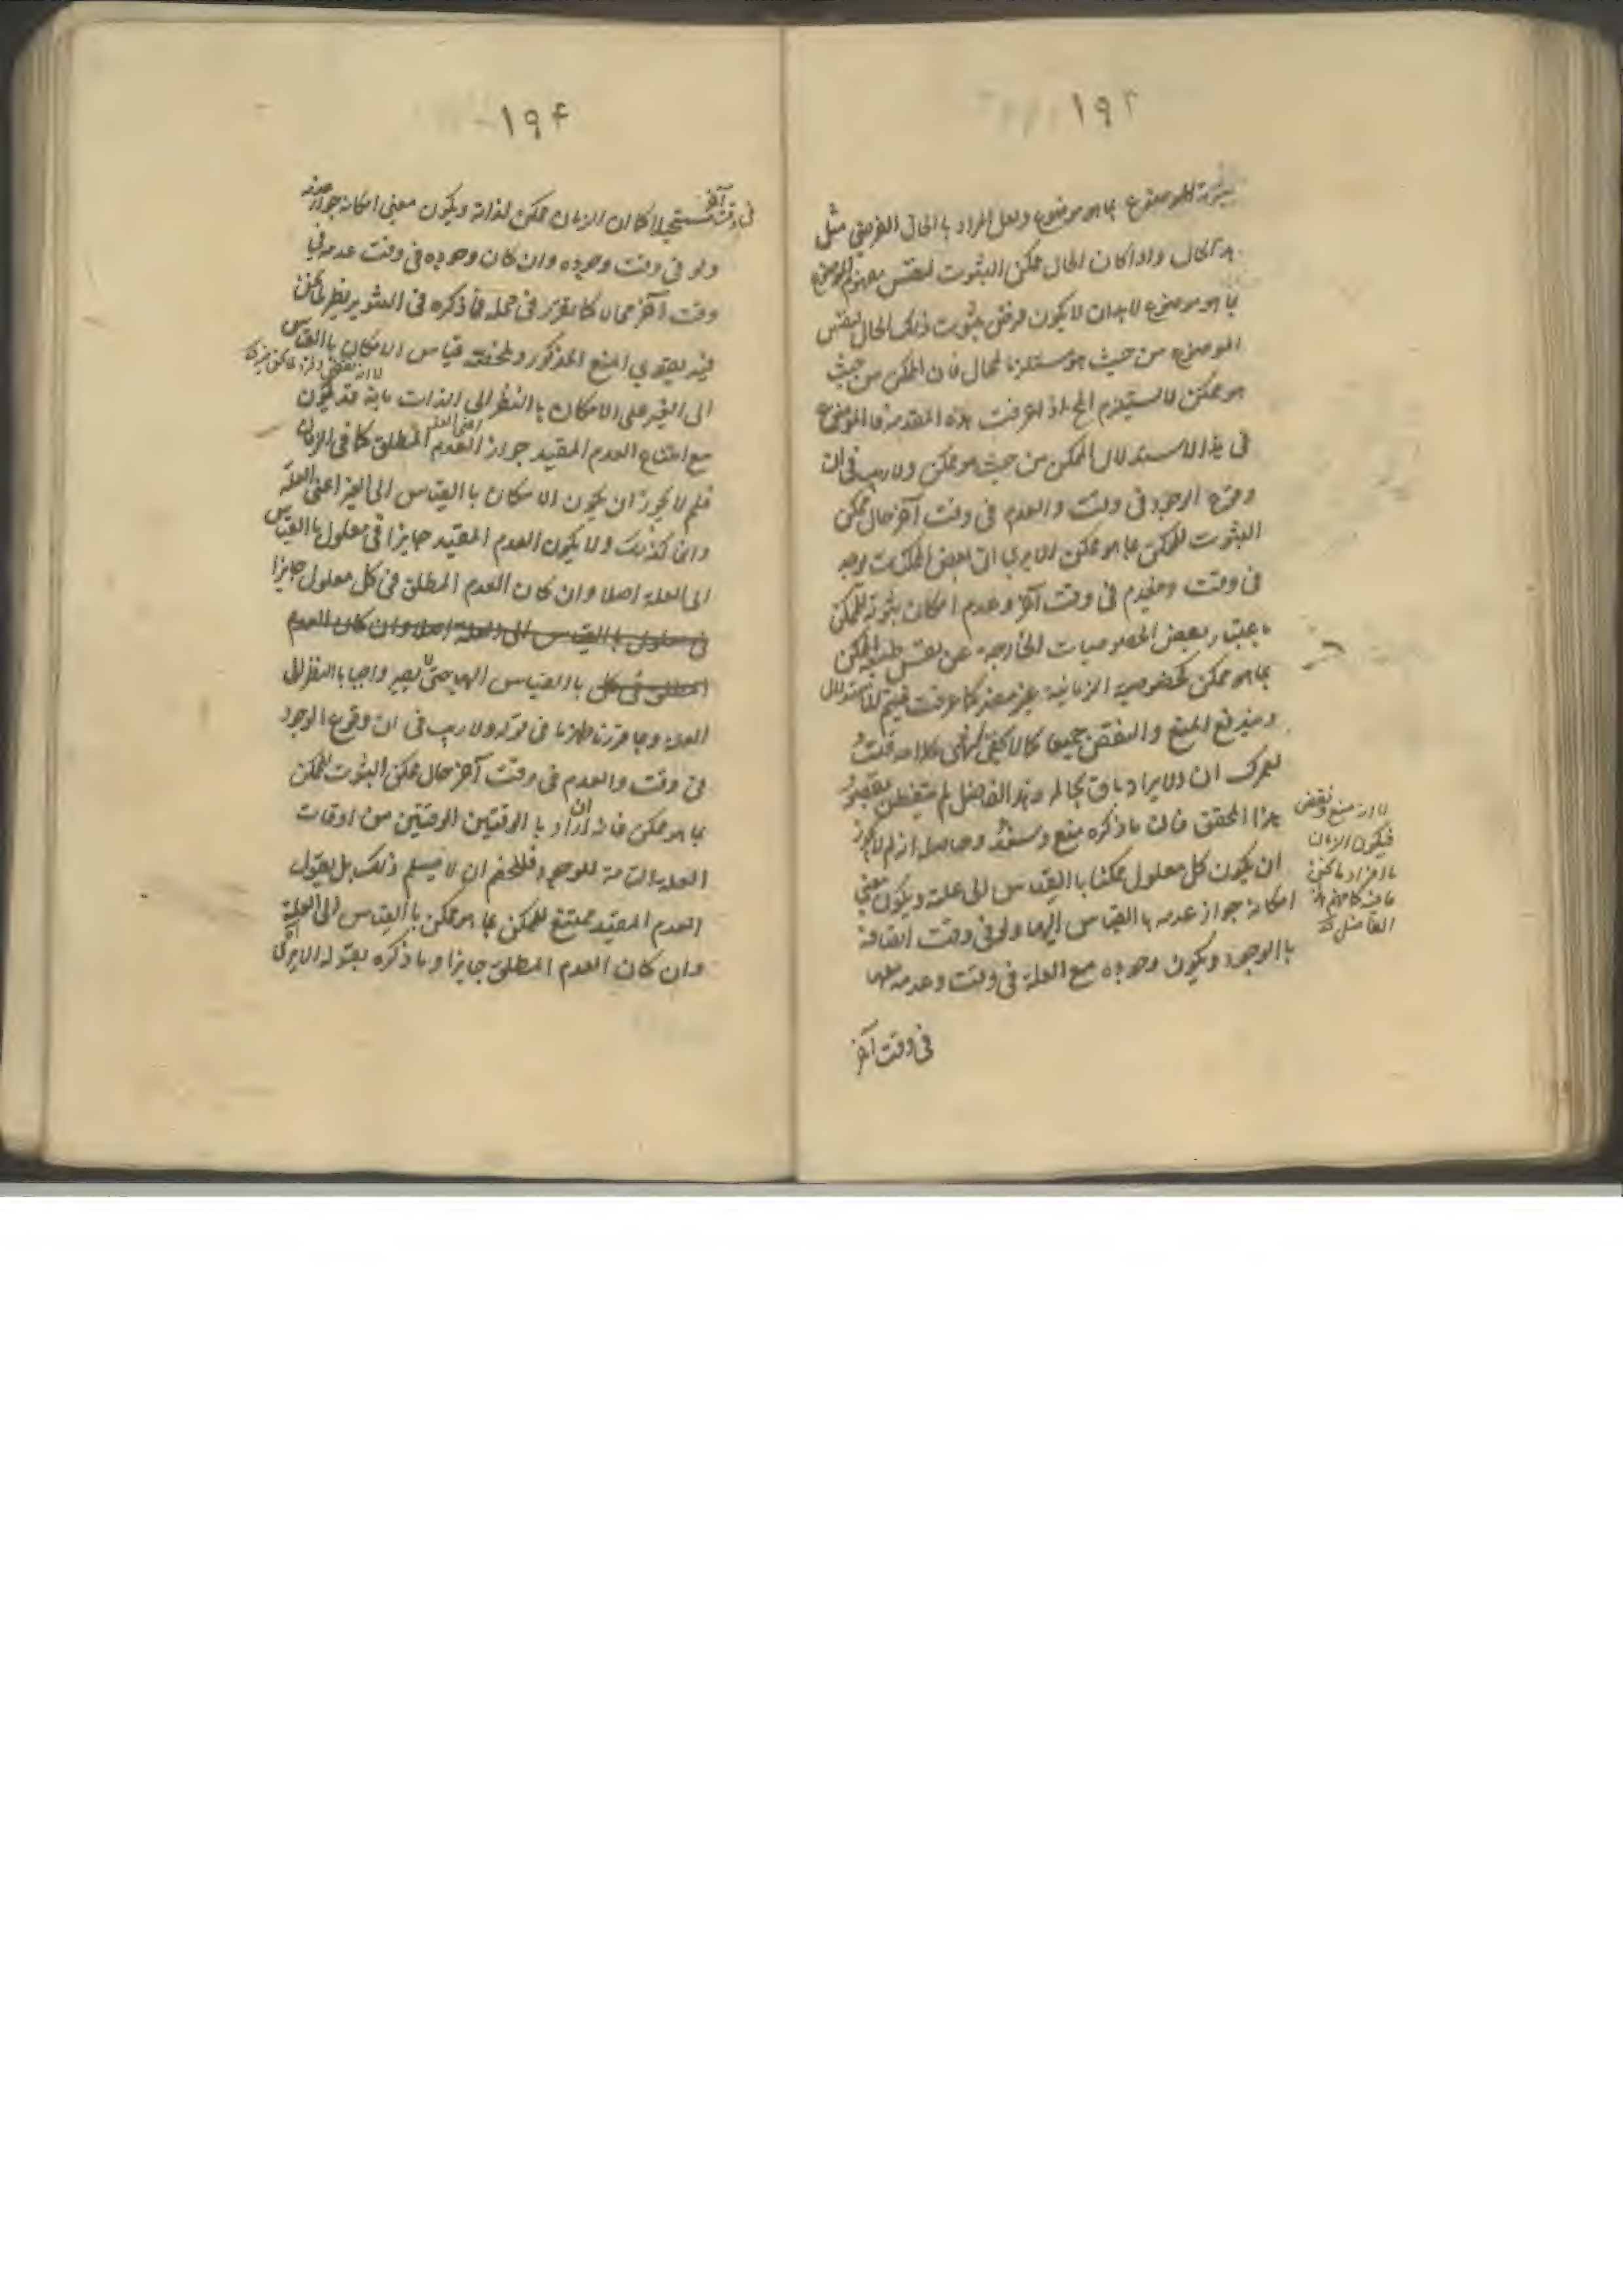 ١٩٣
الموضوع بما هو موضوع ولعل المراد بالحال الفرضي مثل
هذا الحال واذا كان الحال ممكن الثبوت لنفس مفهوم الموضوع
بما هو موضوع لا بد ان لا يكون فرض ثبوت ذلك الحال لنفس
الموضوع من حيث هو مستلزما لمحال فان الممكن من حيث
هو ممكن لا يستلزم المح اذا عرفت هذه المقدمة فالموضوع
فى هذا الاستدلال الممكن من حيث هو ممكن ولا ريب فى ان
وقوع الوجود فى وقت والعدم فى وقت آخر حال ممكن
الثبوت للممكن بما هو ممكن الا يرى ان بعض الممكنات يوجد
فى وقت وينعدم فى وقت آخر وعدم امكان ثبوته للممكن
باعتبار بعض الخصوصيات الخارجة عن نفس طبيعة الممكن
بما هو ممكن كخصوصية الزمانية غير مضر كما عرفت فيتم الاستدلال
ويندفع المنع والنقض جميعا كما لا يخفى انتهى كلامه قلت
لعمرك ان الايراد باق بحاله وهذا الفاضل لم يتفطن بمقصود
هذا المحقق فان ما ذكره منع وسند وحاصله انه لم لا يجوز
ان يكون كل معلول ممكنا بالقياس الى علته ويكون معنى
امكانه جواز عدمه بالقياس اليها ولو فى وقت اتصافه
بالوجود ويكون وجوده مع العلة فى وقت وعدمه معها
فى وقت آخر
لا انه منع ونقض
فيكون الزمان
كما فهم هذا
الفاضل
١٩٤
فى وقت آخر مستحيلا كما ان الزمان ممكن لذاته ويكون معنى امكانه جواز عدمه
ولو فى وقت وجوده وان كان وجوده فى وقت عدمه فى
وقت آخر محالا كما تقرر فى محله فما ذكره فى التنوير نظير للممكن
فيه يقوي المنع المذكور وملخصه قياس الامكان بالقياس
الى الغير على الامكان بالنظر الى الذات بانه قد يكون
مع امتناع العدم المقيد جواز العدم المطلق كما فى الزمان
فلم لا يجوز ان يكون الامكان بالقياس الى الغير اعنى العلة
ايضا كذلك ولا يكون العدم المقيد جايزا فى معلول بالقياس
الى العلة اصلا وان كان العدم المطلق فى كل معلول جايزا
فى معلول بالقياس الى العلة اصلا وان كان العدم
المطلق فى كل بالقياس اليها حتى لا يصير واجبا بالنظر الى
العلة وبما قررنا ظهر ما فى قوله ولا ريب فى ان وقوع الوجود
فى وقت والعدم فى وقت آخر حال ممكن الثبوت للممكن
بما هو ممكن فانه ان اراد بالوقتين الوقتين من اوقات
العلة التامة للوجود فللخصم ان لا يسلم ذلك بل يقول
العدم المقيد ممتنع للممكن بما هو ممكن بالقياس الى العلة
وان كان العدم المطلق جايزا وما ذكره بقوله الا يرى ان